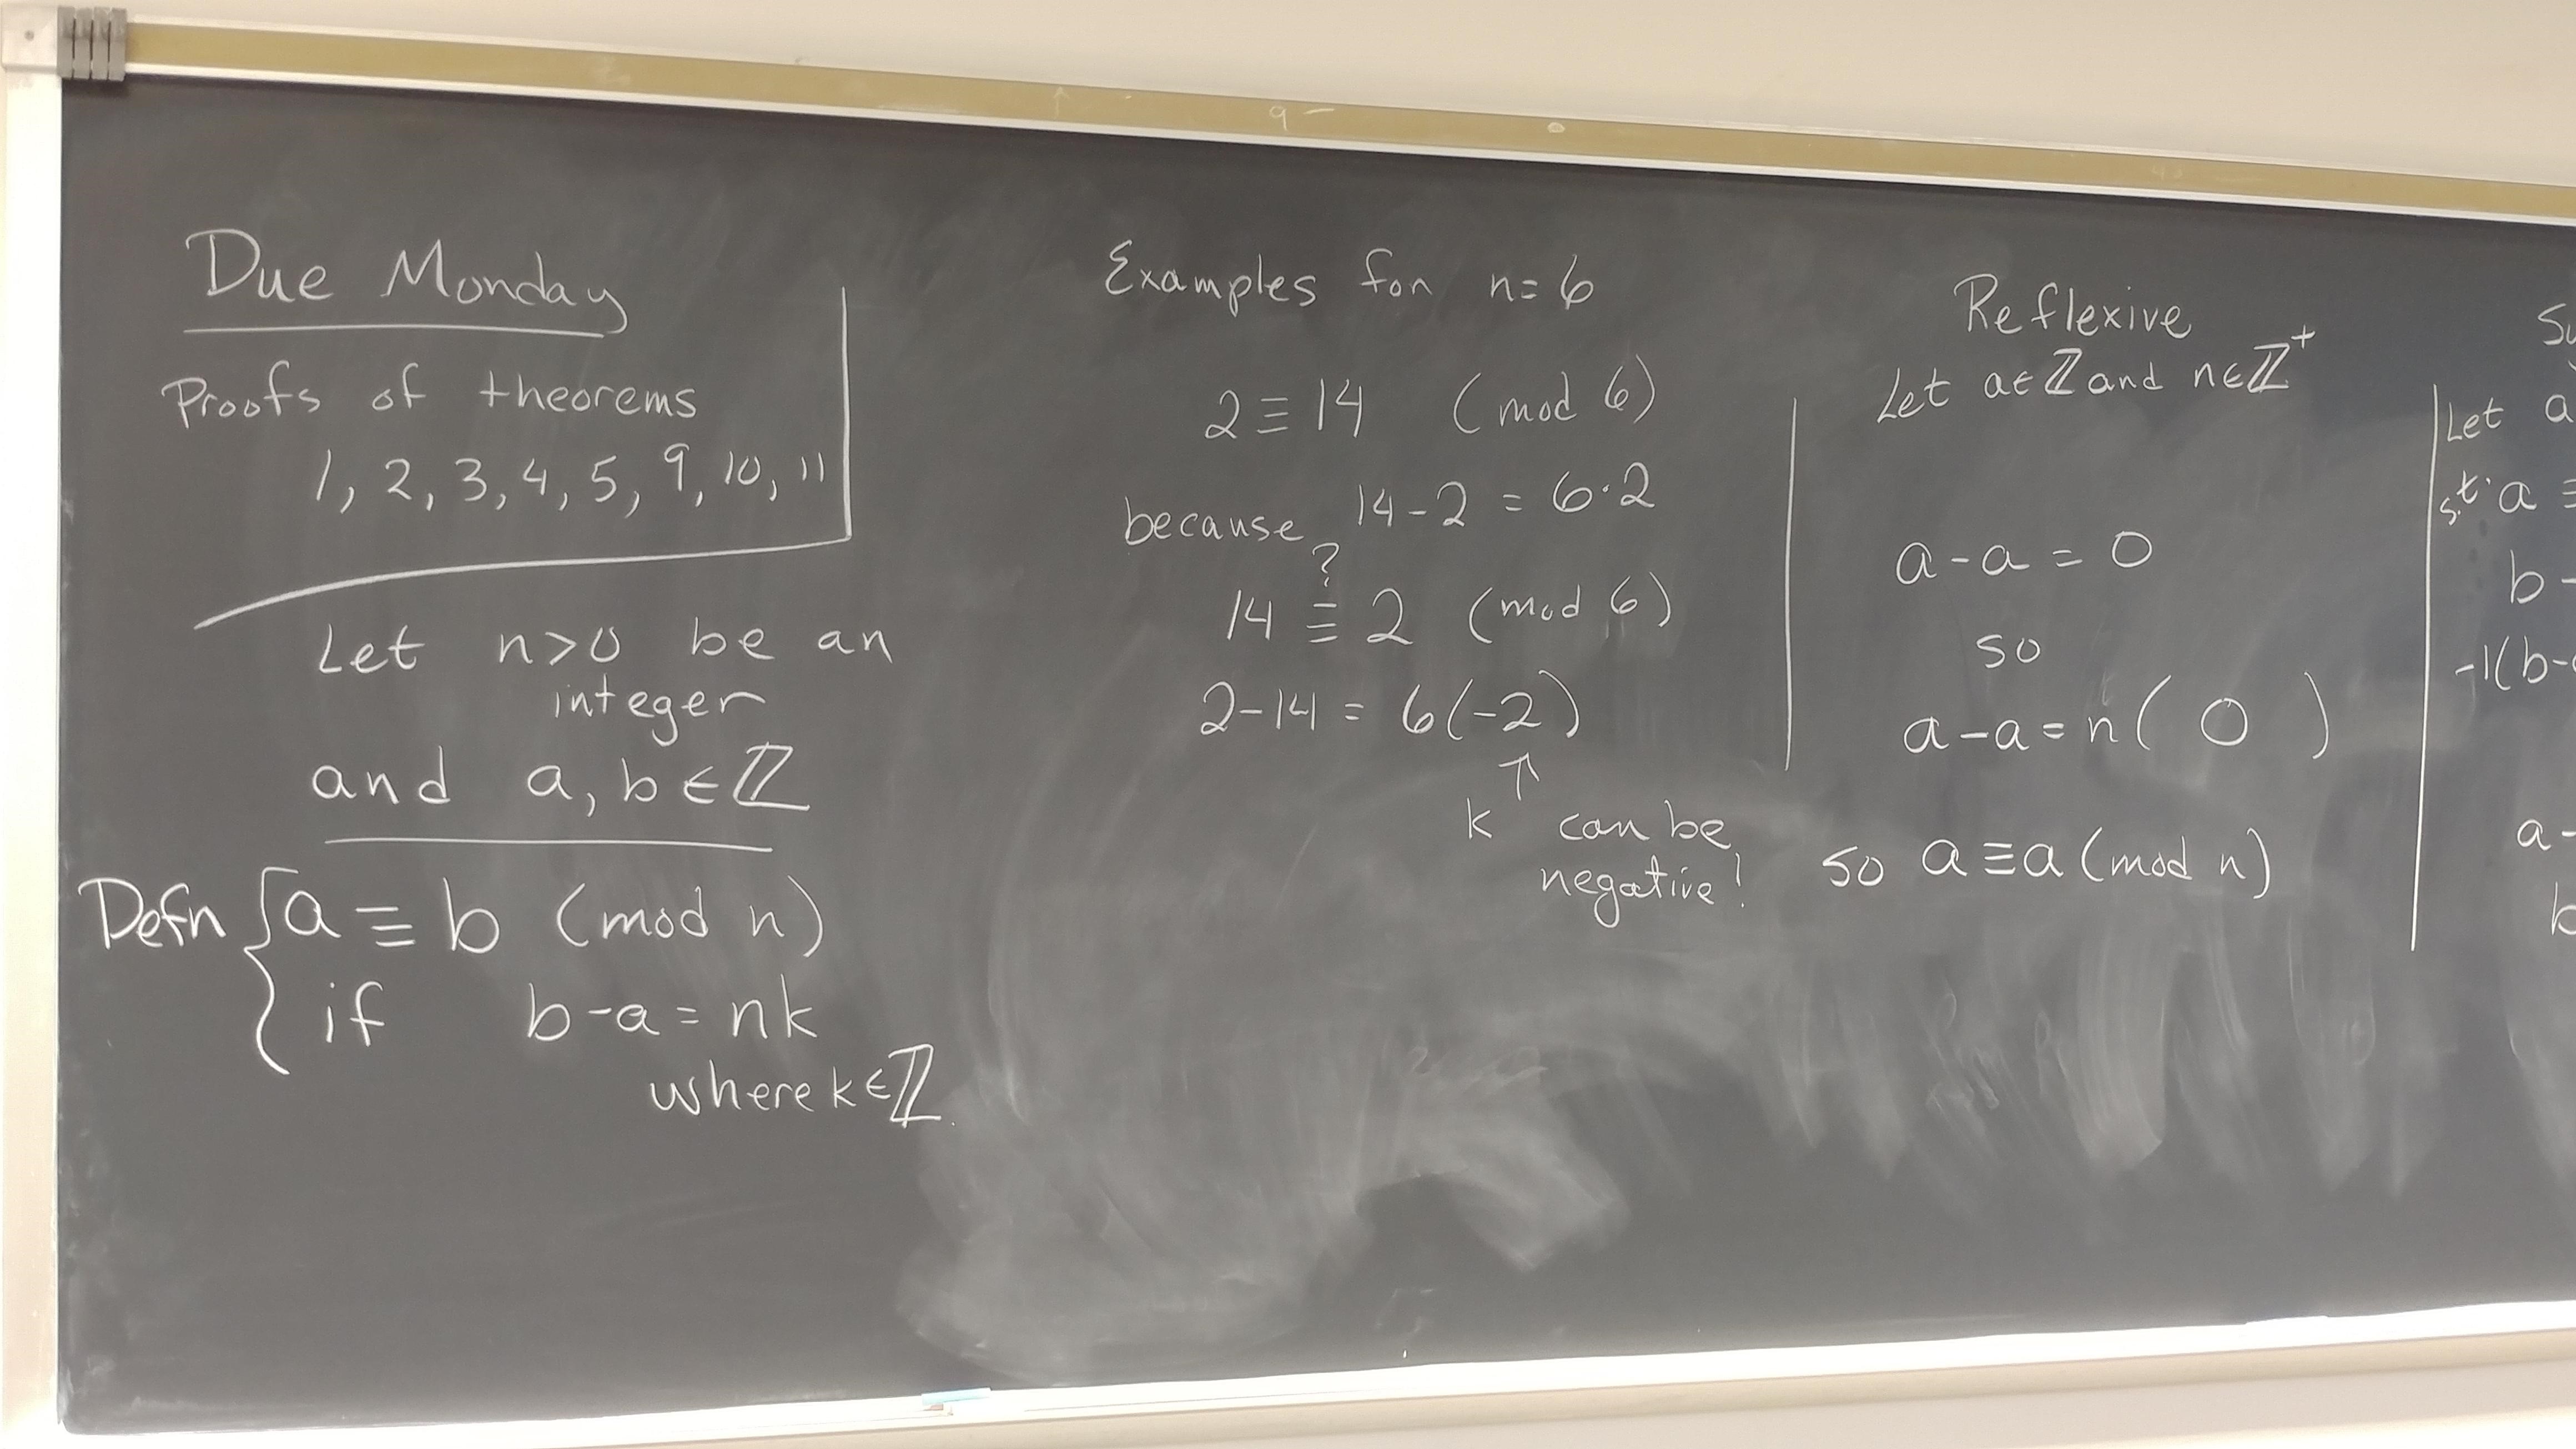 Due Monday
Proofs of theorems
1, 2, 3, 4, 5, 9, 10, 11
Let n>0 be an
integer
and a, b ∈ ℤ
Defn { a ≡ b (mod n)
if b-a = nk
where k ∈ ℤ.
Examples for n=6
2 ≡ 14 (mod 6)
because 14-2 = 6·2
?
14 ≡ 2 (mod 6)
2-14 = 6(-2)
↑
k can be
negative!
Reflexive
Let a∈ℤ and n∈ℤ⁺
a-a = 0
so
a-a = n( 0 )
so a ≡ a (mod n)
Let a
s.t. a ≡
b-
-1(b-
a-
b